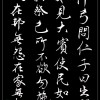 仲弓問仁子曰出
見大賓使民如
祭己所不欲勿施
在邦無怨在家無